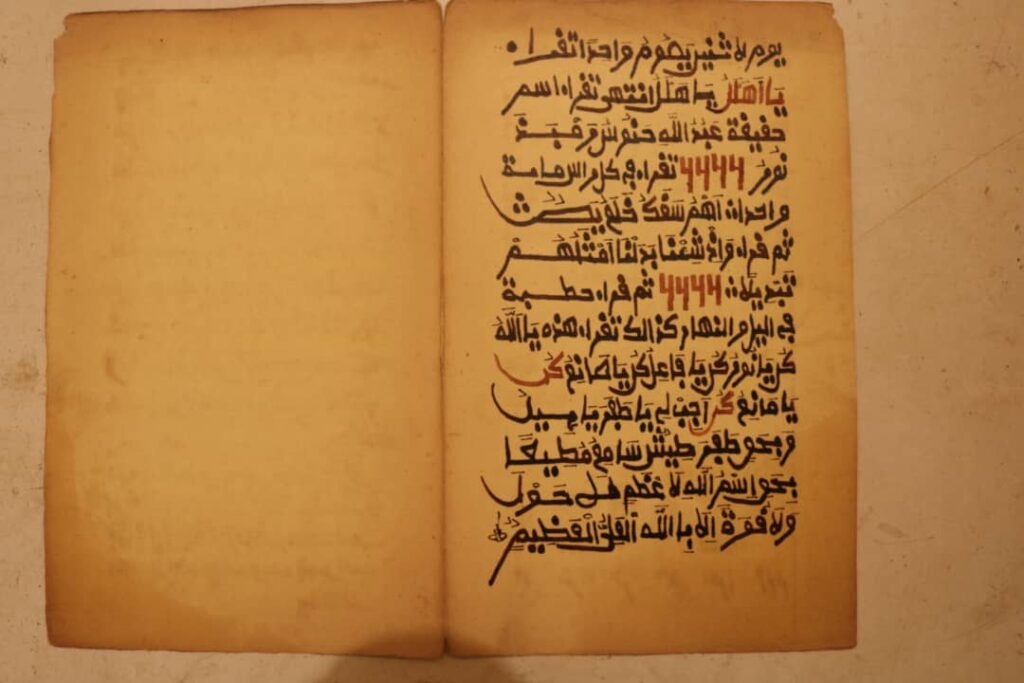 يوم لا ثنين يصوم واحدا تقرا.
يا اهلل يا هلل انتهى تقراه اسم
حقيقة عبد الله حتوس و قبة
نور 4444 تقراه في كل الس مامة
واحداة اهم سقك خلع يصث
ثم قراه واذ شئنا بدلنا امثلهم
تبديلاة 4444 ثم قراه حطبة
في اليل و النهار كذالك تقراه هذه يا الله
كر يا نور كر يا فاعل كر يا صانع كر
يا مانع كر اجب لي يا طفر يا
و بحو طفر طيش سامع مطيعا
بحو اسم الله لا عظم حول
ولا قوة الا بالله العلي العظيم